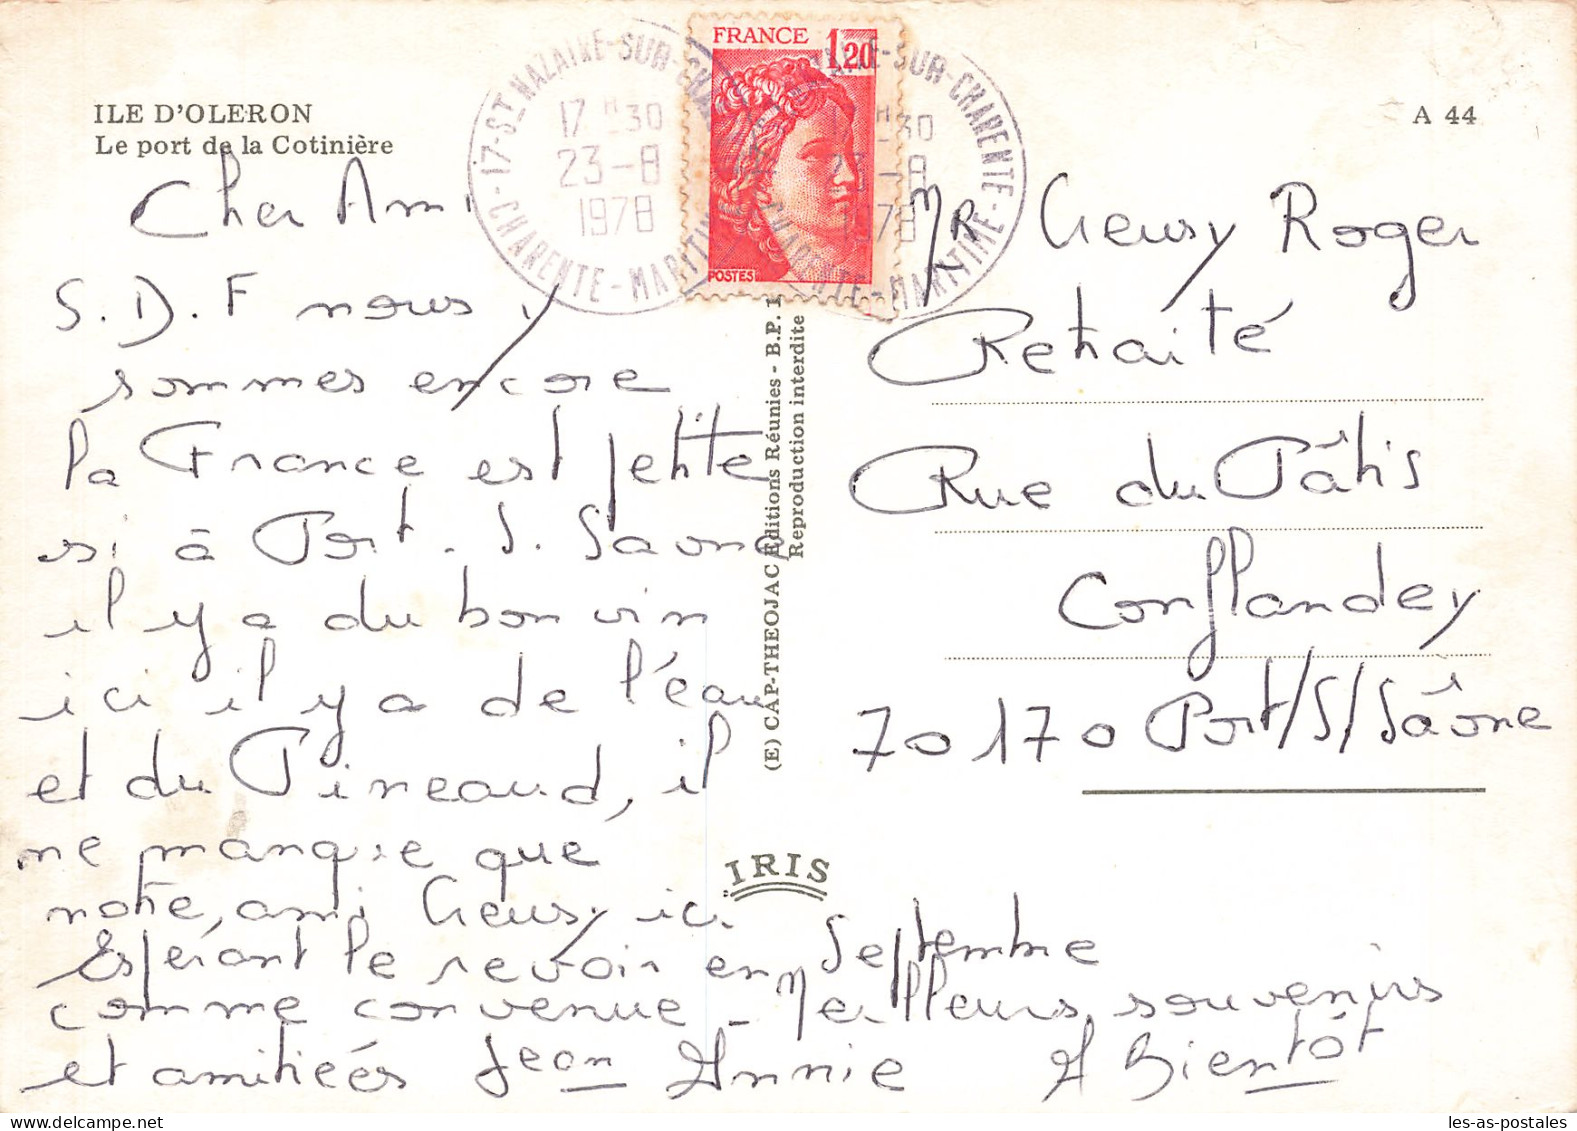 ILE D'OLERON
Le port de la Cotinière
A 44
17-ST NAZAIRE-SUR-CHARENTE - CHARENTE-MARITIME
17 H 30
23-8
1978
FRANCE 1,20
POSTES
17 H 30
23-8
1978
Cher Ami
S.D.F nous y
sommes encore
la France est petite
si à Port. S. Saone
il y a du bon vin
ici il y a de l'eau
et du Pineaud, il
ne manque que
notre, ami Creusy ici
Espérant le revoir en Septembre
comme convenue - Meilleurs souvenirs
et amitiées Jean Annie A Bientôt
MR Creusy Roger
Retraité
Rue du Pâtis
Conflandey
70170 Port/S/Saône
(E) CAP-THEOJAC Editions Réunies - B.P. 1
Reproduction interdite
IRIS
les-as-postales